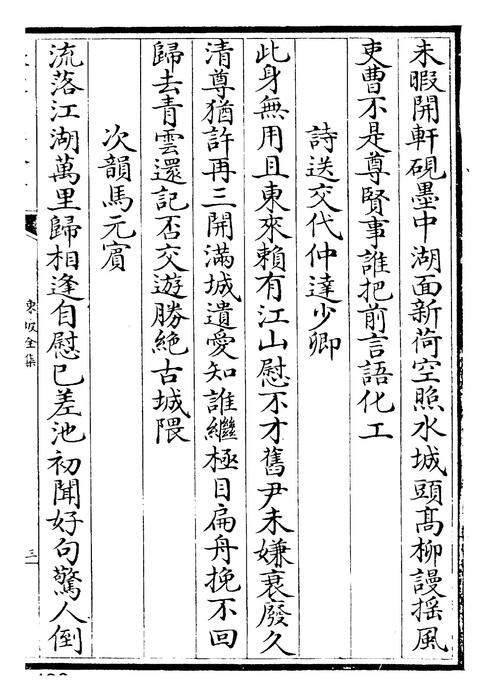 未暇開軒硯墨中湖面新荷空照水城頭髙柳謾揺風
吏曹不是尊賢事誰把前言語化工
詩送交代仲達少卿
此身無用且東來賴有江山慰不才舊尹未嫌衰廢久
清尊猶許再三開滿城遺愛知誰繼極目扁舟挽不回
歸去青雲還記否交遊勝絶古城隈
次韻馬元賓
流落江湖萬里歸相逢自慰已差池初聞好句驚人倒
東坡全集
三